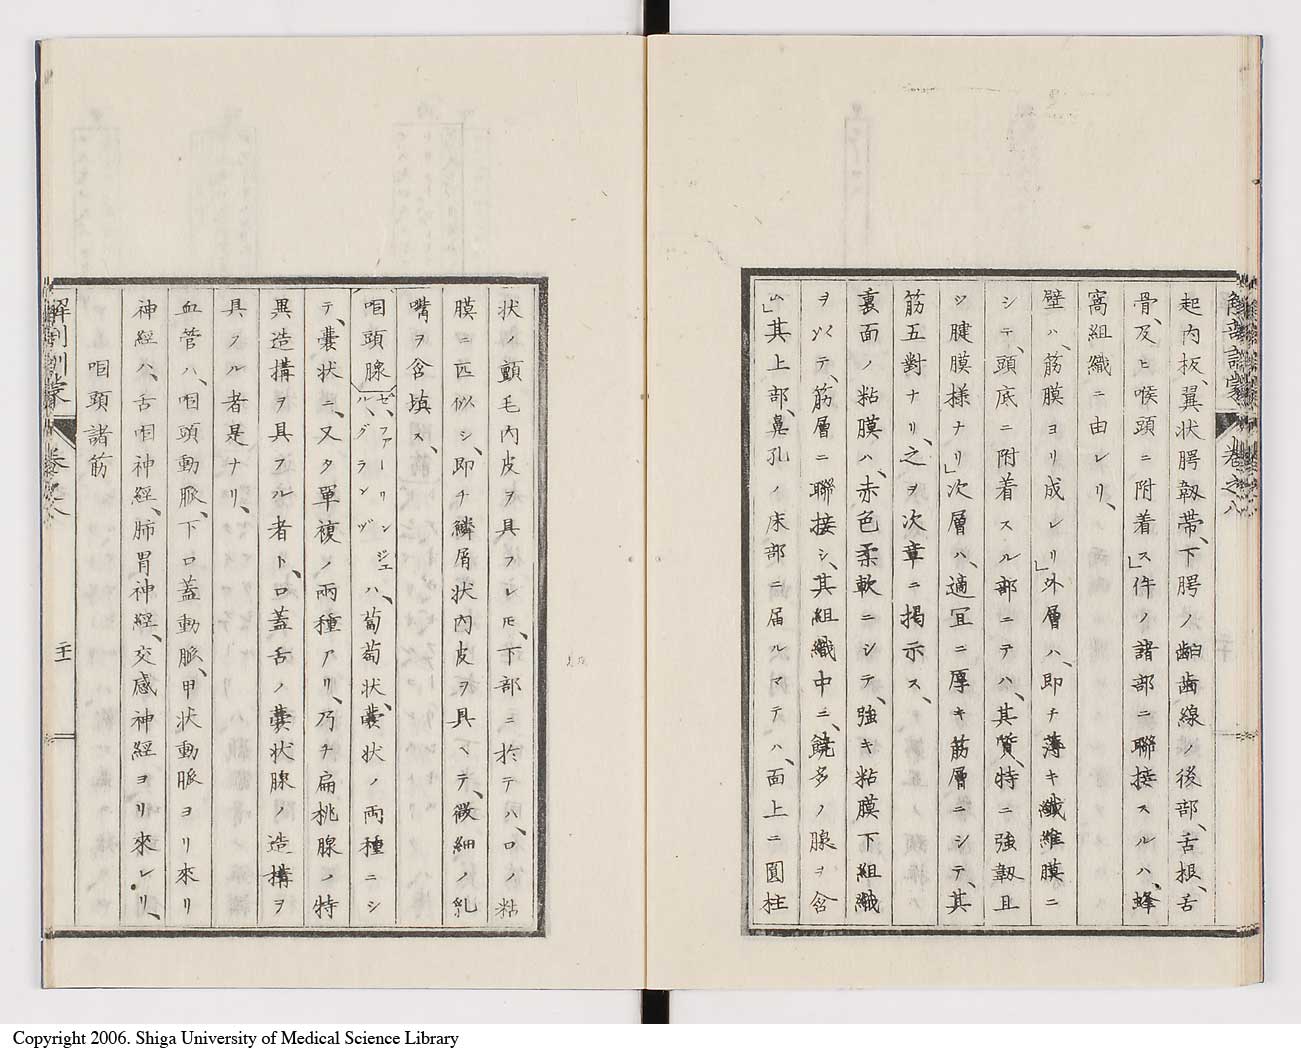 解剖訓蒙 卷之八
起內板、翼状腭韌帶、下腭ノ齨齒線ノ後部、舌根、舌
骨、及ヒ喉頭ニ附着ス」件ノ諸部ニ聯接スルハ、蜂
窩組織ニ由レリ、
壁ハ、筋膜ヨリ成レリ」外層ハ、即チ薄キ纖維膜ニ
シテ、頭底ニ附着スル部ニテハ、其質、特ニ強韌且
ツ腱膜様ナリ」次層ハ、適宜ニ厚キ筋層ニシテ、其
筋五對ナリ、之ヲ次章ニ掲示ス、
裏面ノ粘膜ハ、赤色柔軟ニシテ、強キ粘膜下組織
ヲ以テ、筋層ニ聯接シ、其組織中ニ、饒多ノ腺ヲ含
ム」其上部、鼻孔ノ床部ニ届ルマテハ、面上ニ圓柱
状ノ顫毛內皮ヲ具フレ𪜈、下部ニ於テハ、口ノ粘
膜ニ匹似シ、即チ鱗屑状內皮ヲ具ヘテ、微細ノ乳
嘴ヲ含填ス、
咽頭腺 ゼ、ファーリンジェール、グランヅ ハ、葡萄状、囊状ノ両種ニシ
テ、囊状ニ、又タ單複ノ兩種アリ、乃チ扁桃腺ノ特
異造構ヲ具フル者ト、口蓋舌ノ囊状腺ノ造構ヲ
具フル者是ナリ、
血管ハ、咽頭動脈、下口蓋動脈、甲状動脈ヨリ來リ
神經ハ、舌咽神經、肺胃神經、交感神經ヨリ來レリ、
咽頭諸筋
解剖訓蒙 卷之八 二十一
Copyright 2006. Shiga University of Medical Science Library